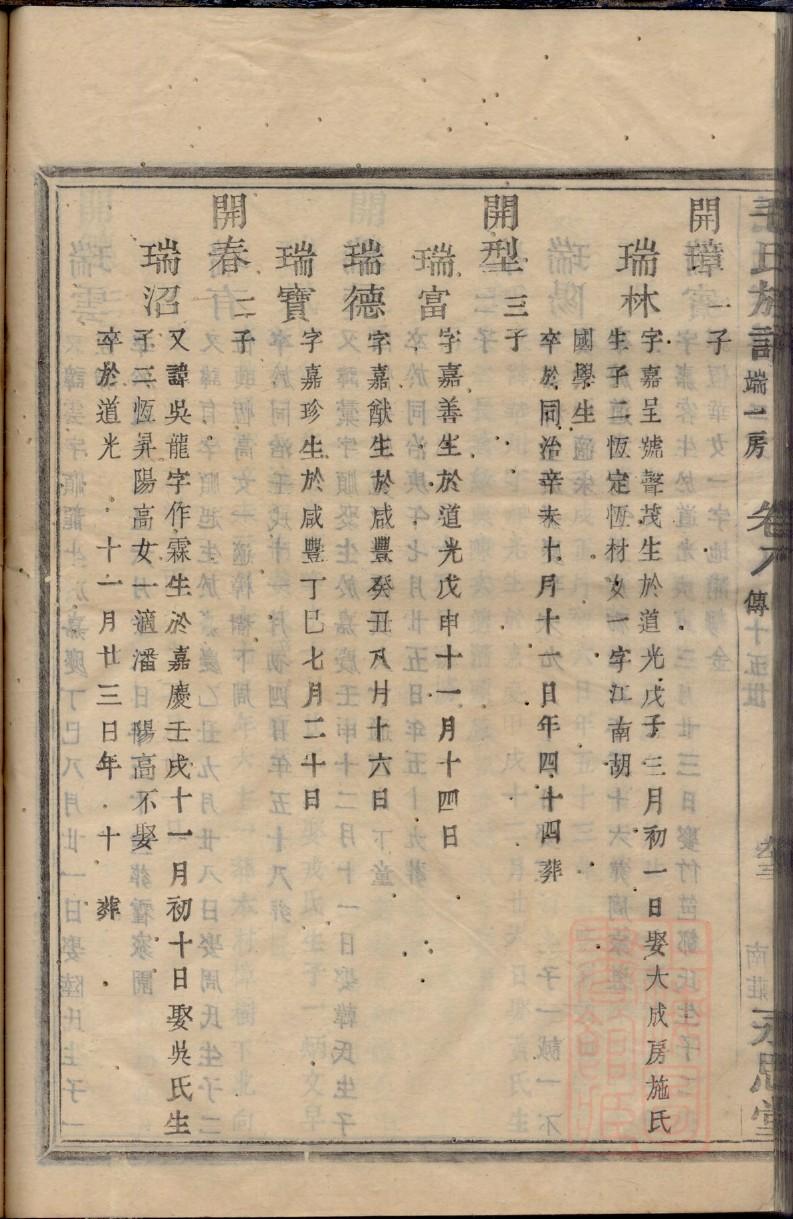 毛氏族譜 端一房 卷八 傳十五世 南莊 永思堂
開璋 一子
瑞林 字嘉呈號聲茂生於道光戊子三月初一日娶大成房施氏
生子二恆定恆材女一字江南胡
國學生
卒於同治辛未十月十六日年四十四葬
開型 三子
瑞富 字嘉善生於道光戊申十一月十四日
瑞德 字嘉猷生於咸豐癸丑八月廿十六日
瑞寶 字嘉珍生於咸豐丁巳七月二十日
開春 二子
瑞沼 又諱吳龍字作霖生於嘉慶壬戌十一月初十日娶吳氏生
子二恆昇陽高女一適潘 陽高不娶
卒於道光 十一月廿三日年 十 葬